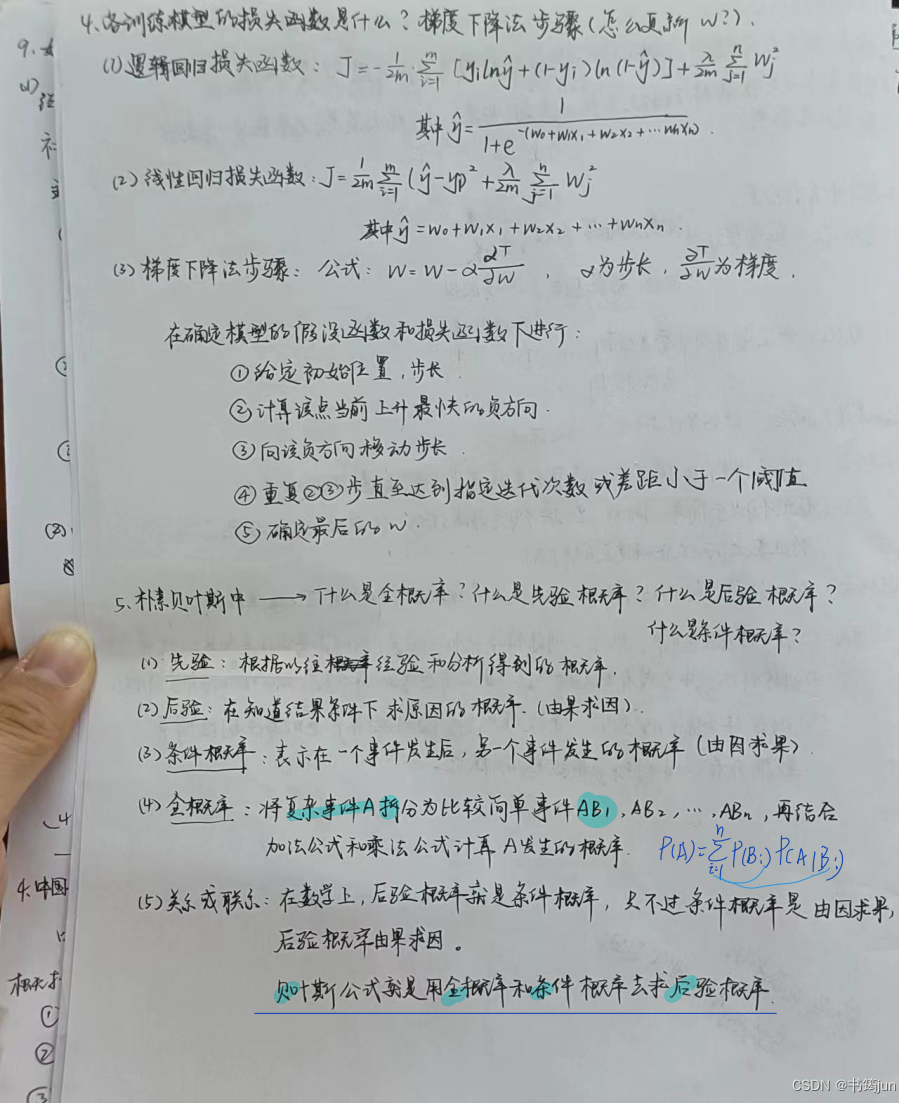 4.各训练模型的损失函数是什么？梯度下降法步骤(怎么更新w?).
(1)逻辑回归损失函数: J=-\frac{1}{2m}·\sum_{i=1}^{m}[y_i ln ŷ+(1-y_i)ln(1-ŷ)]+\frac{λ}{2m}\sum_{j=1}^{n}W_j^2
其中ŷ=\frac{1}{1+e^{-(w_0+w_1x_1+w_2x_2+…w_nx_n)}}.
(2)线性回归损失函数:J=\frac{1}{2m}\sum_{i=1}^{m}(ŷ-y_i)^2+\frac{λ}{2m}\sum_{j=1}^{n}W_j^2
其中ŷ=w_0+w_1x_1+w_2x_2+…+w_nx_n.
(3)梯度下降法步骤: 公式: W=W-α\frac{∂J}{∂W}, α为步长,\frac{∂J}{∂W}为梯度.
在确定模型的假设函数和损失函数下进行:
①给定初始位置,步长.
②计算该点当前上升最快的负方向.
③向该负方向移动步长.
④重复②③步直至达到指定迭代次数或差距小于一个阈值
⑤确定最后的w.
5.朴素贝叶斯中→什么是全概率？什么是先验概率？什么是后验概率？
什么是条件概率？
(1)先验: 根据以往经验和分析得到的概率.
(2)后验: 在知道结果条件下求原因的概率.(由果求因).
(3)条件概率:表示在一个事件发生后,另一个事件发生的概率(由因求果).
(4)全概率: 将复杂事件A拆分为比较简单事件AB_1,AB_2,…,AB_n,再结合
加法公式和乘法公式计算A发生的概率. P(A)=\sum_{i=1}^{n}P(B_i)P(A|B_i)
(5)关系或联系:在数学上,后验概率就是条件概率,只不过条件概率是由因求果,
后验概率由果求因。
贝叶斯公式就是用全概率和条件概率去求后验概率.
9.
(2).
4.中国
①
②
③
CSDN @书筠jun